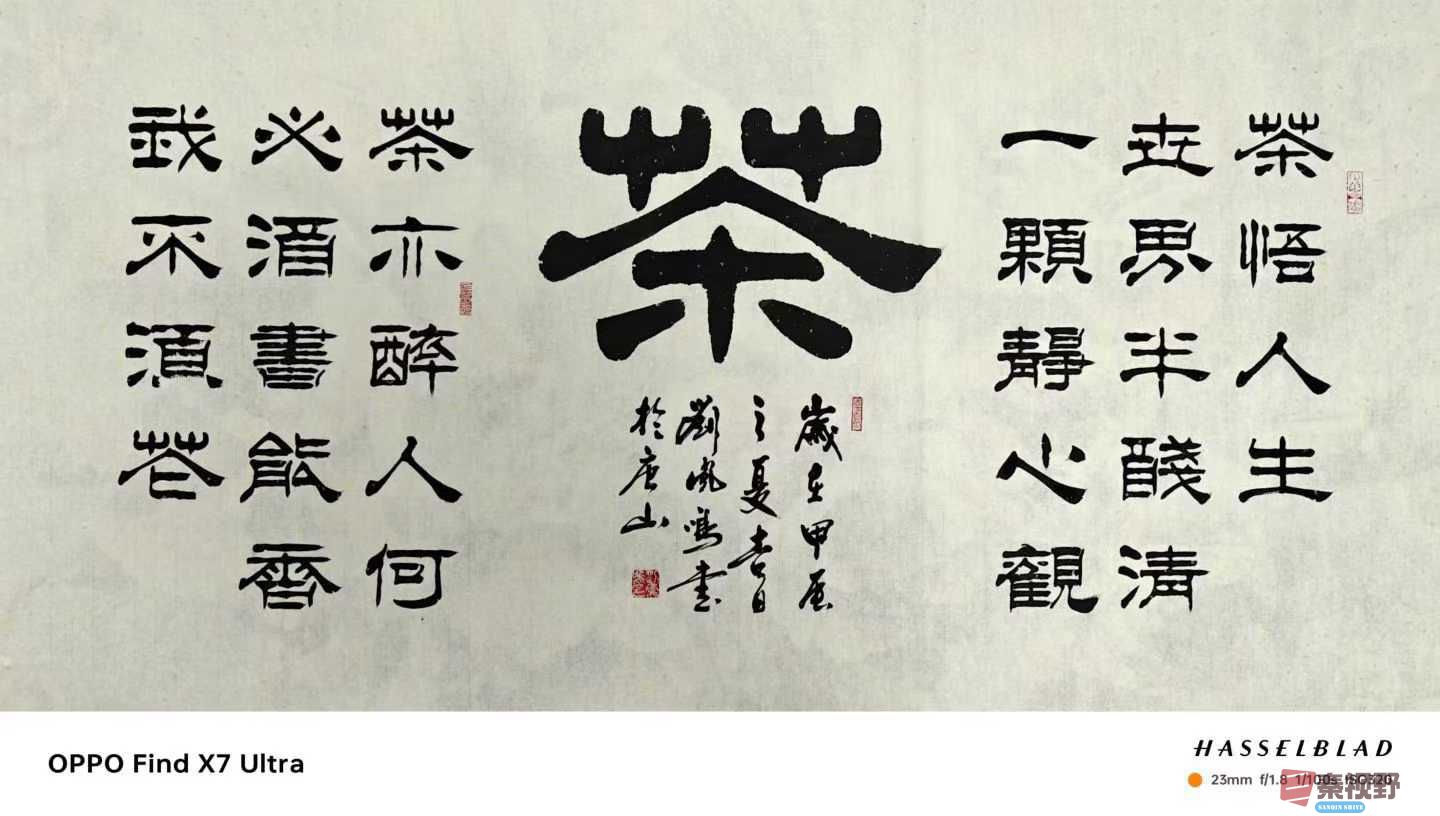 茶悟人生
世界半醆清
一顆靜心觀
茶
歲在甲辰
之夏吉日
劉鳳鳴書
於唐山
茶亦醉人何
必酒書能香
我不須花
OPPO Find X7 Ultra
HASSELBLAD
23mm f/1.8 1/100s ISO320
秦视野
SANQIN SHIYE